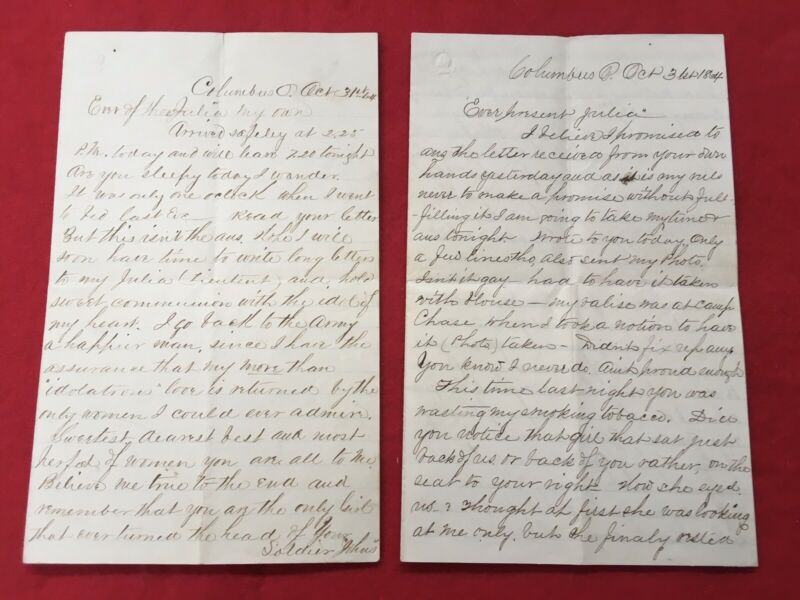 Columbus O. Oct 31st/64
Ever of thee Julia my own
Arrived safely at 2.25
P.M. today and will leave 7.20 tonight
Are you sleepy today I wonder.
It was only one oclock when I went
to bed last Eve — Read your letter
But this isn't the ans. Hope I will
soon have time to write long letters
to my Julia (Lieutent) and hold
sweet communion with the idol of
my heart. I go back to the Army
a happier man, since I have the
assurance that my more than
"idolatrous" love is returned by the
only women I could ever admire.
Sweetest dearest best and most
perfect of women you are all to me.
Believe me true to the end and
remember that you are the only Girl
that ever turned the head of your
Soldier
Columbus O. Oct 31st 1864
"Ever present Julia"
I believe I promised to
ans the letter received from your own
hands yesterday and as it is my rule
never to make a promise without full-
-filling it I am going to take my time &
ans tonight. Wrote to you today. Only
a few lines tho, also sent my Photo.
Isint it gay — had to have it taken
with blouse — my valise was at camp
Chase, when I took a notion to have
it (Photo) taken — Didnt fix up any
You know I never do. Aint proud enough
This time last night you was
wasting my smoking tobacco. Did
you notice that girl that sat just
back of us or back of you rather, on the
seat to your right. How she eyed
us. I thought at first she was looking
at me only, but she finaly rested